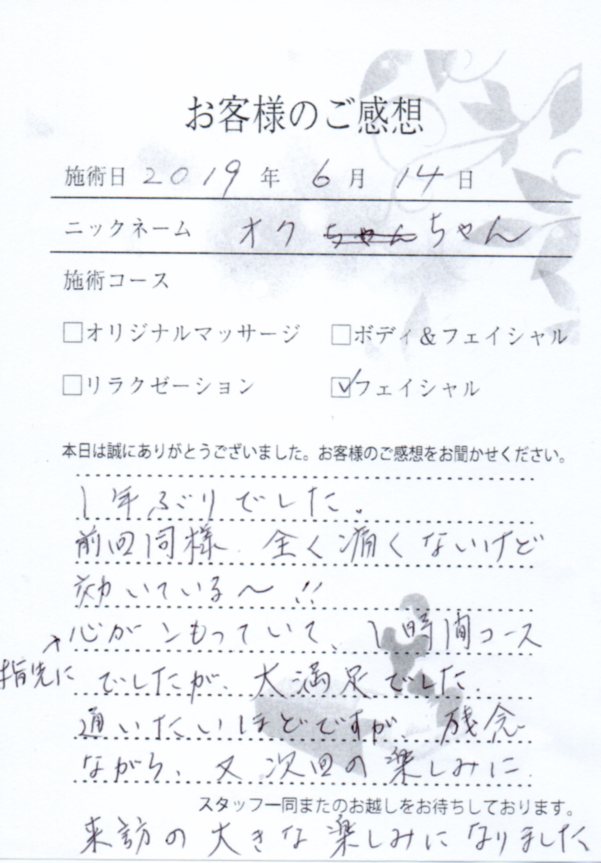 お客様のご感想
施術日 2019 年 6 月 14 日
ニックネーム オク ちゃん ちゃん
施術コース
□オリジナルマッサージ □ボディ&フェイシャル
□リラクゼーション ☑フェイシャル
本日は誠にありがとうございました。お客様のご感想をお聞かせください。
1年ぶりでした。
前回同様、全く痛くないけど
効いている〜!!
指先に心がこもっていて、1時間コース
でしたが、大満足でした。
通いたいほどですが、残念
ながら、又次回の楽しみに
スタッフ一同またのお越しをお待ちしております。
来訪の大きな楽しみになりました